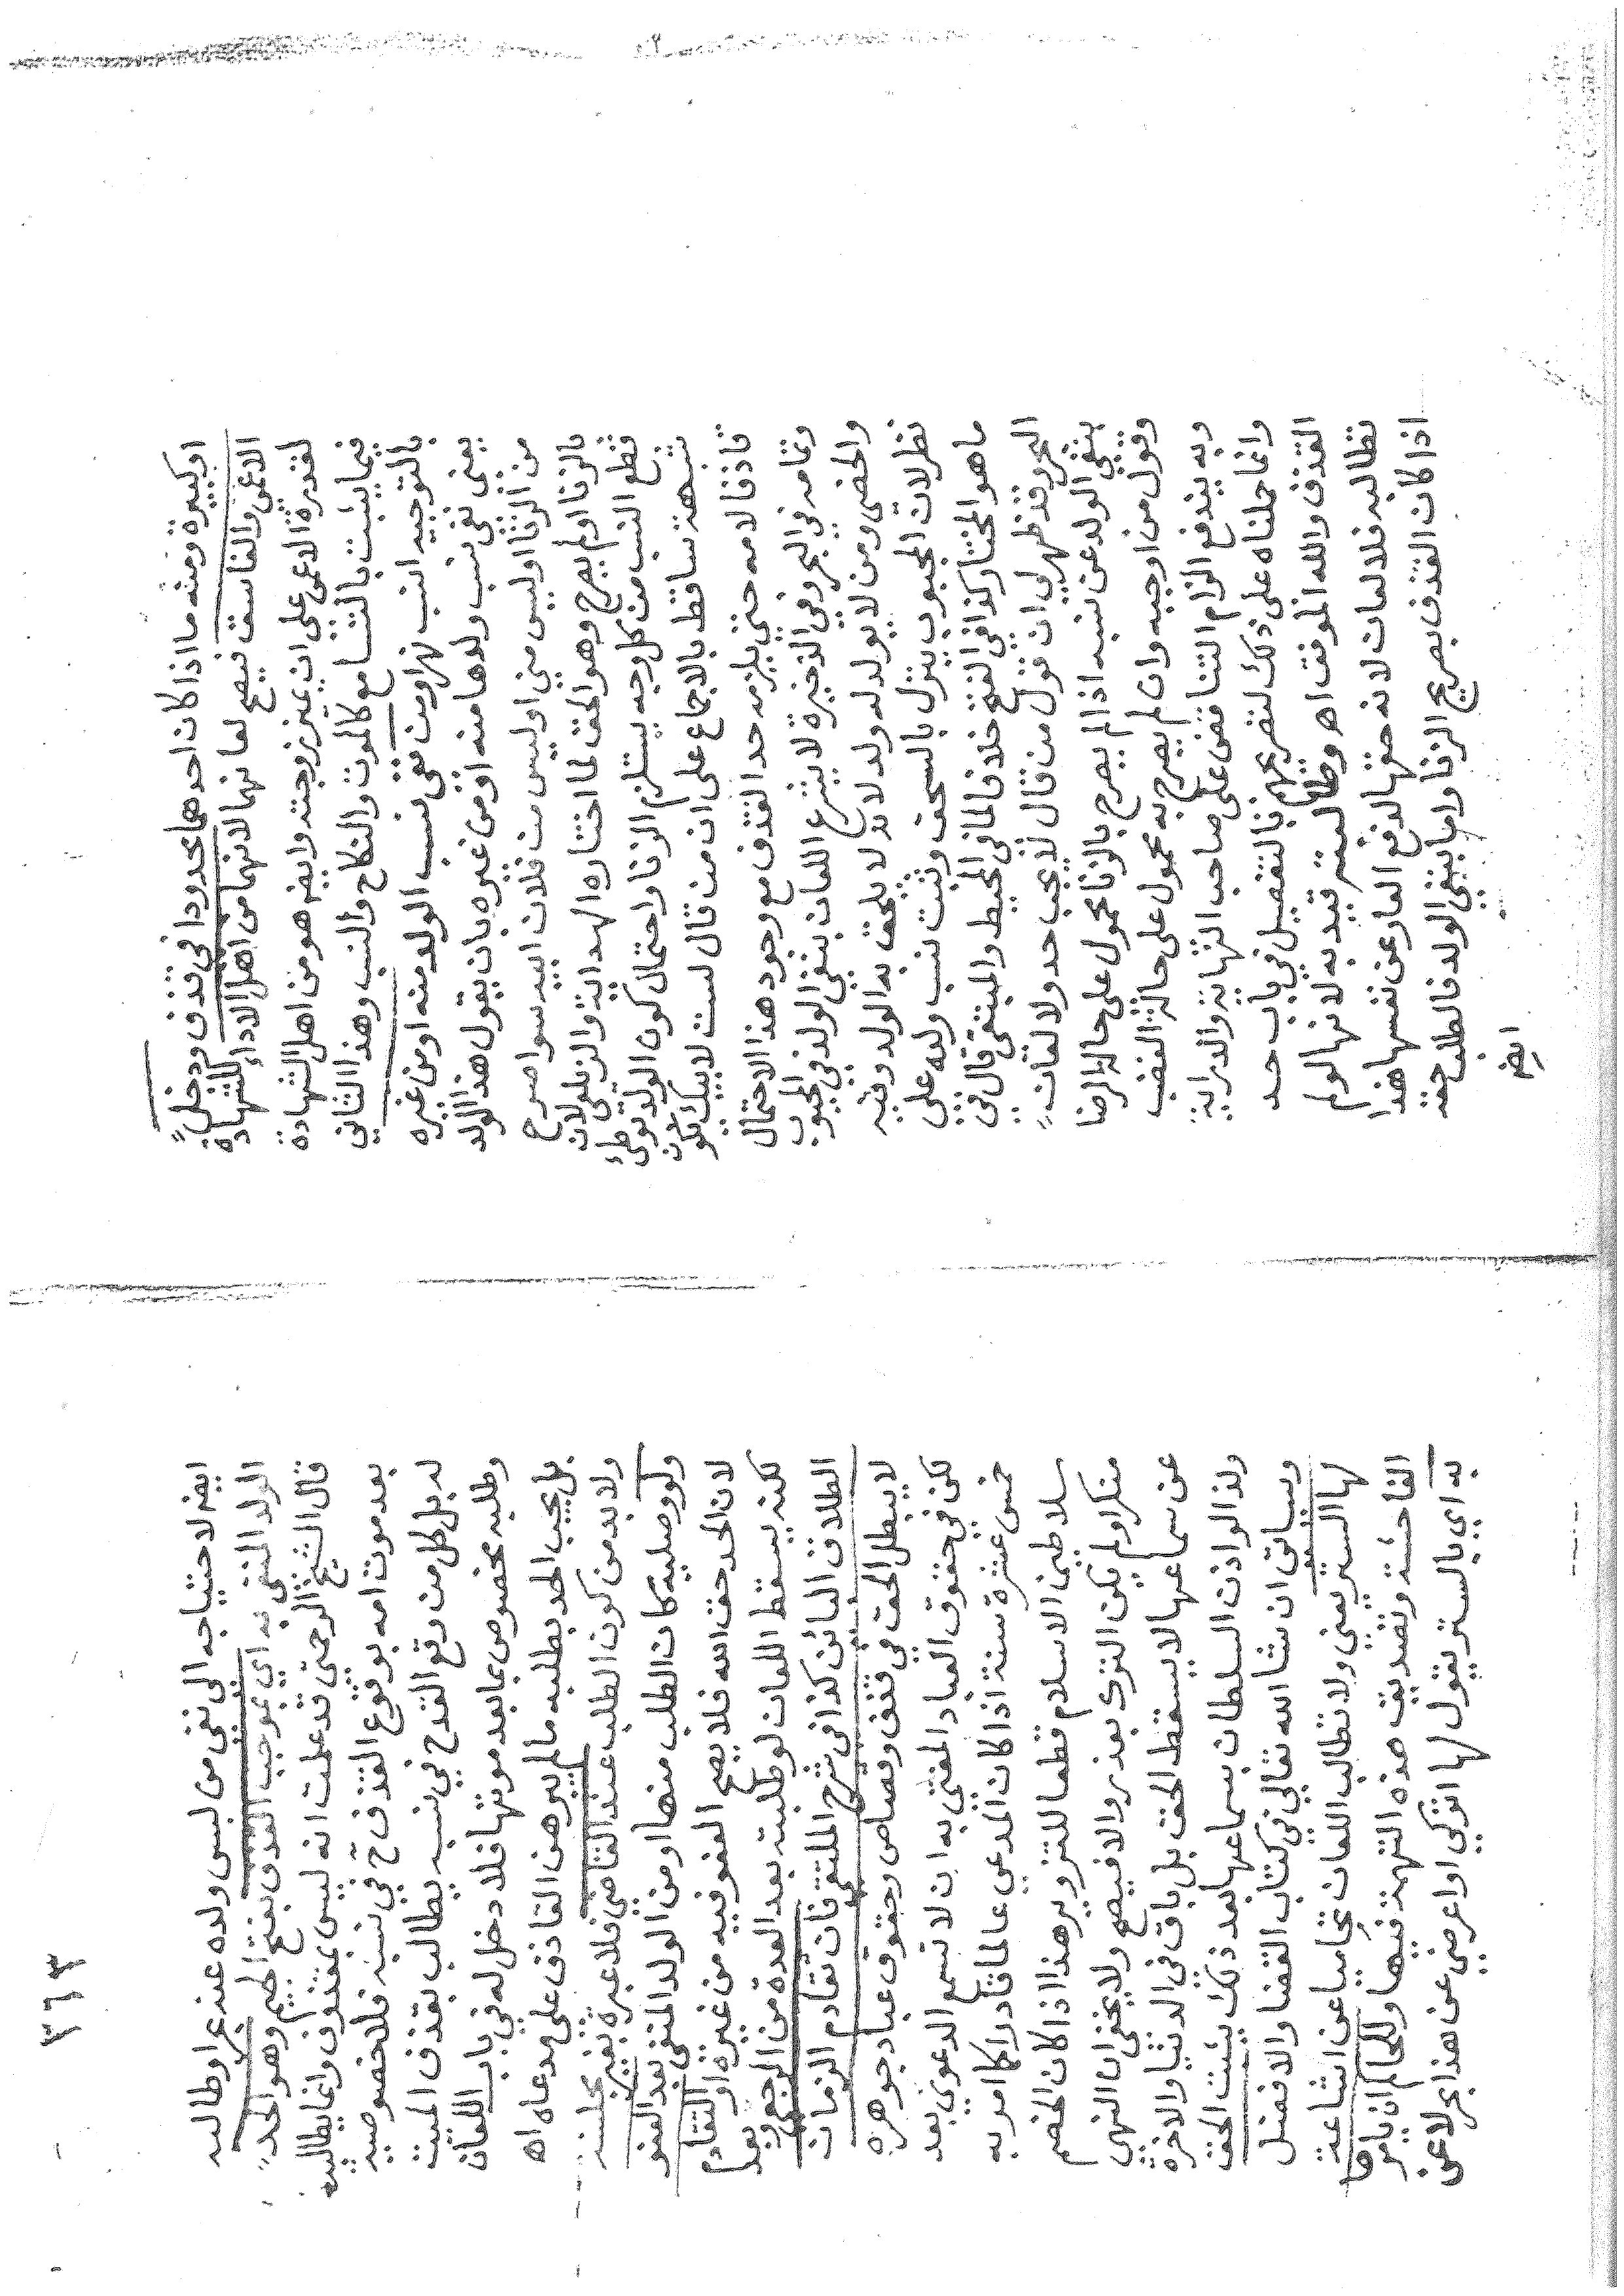 او كبيرة ومثله ما اذا كان احدهما محدودا في قذف ودخل
الاعمى والفاسق فيصح لعانهما لانهما من اهل الاداء للشهادة
لقدرة الاعمى على ان يميز زوجته وايضا هو من اهل الشهادة
فيما يثبت بالتسامع كالموت والنكاح والنسب وهذا الثاني
بالتوجيه انسب نهر او من نفى نسب الولد منه او من غيره
يعني نفى نسب ولدها منه او من غيره بان يقول هذا الولد
من الزنا او ليس مني او ليس من فلان ابيه سوا صرح
بالزنا او لم يصرح وهو الحق لما اختاره الهداية والزيلعي لان
قطع النسب من كل وجه يستلزم الزنا واحتمال كون الولد بوطئ
شبهة ساقط بالاجماع على ان من قال لست لابيك يكون
قاذفا لامه حتى يلزمه حد القذف مع وجود هذا الاحتمال
وتمامه في البحر وفي الذخيرة لا يشرع اللعان بنفي الولد في المجبوب
والخصي ومن لا يولد له ولد لانه لا يلحق به الولد وفيه
نظر لان المجبوب ينزل بالسحق وثبت نسب ولده على
ما هو المختار كذا في الفتح خلافا لما في المحيط والمبتغى قال في
البحر وقد ظهر لي ان قول من قال لا يجب حد ولا لعان
بنفي الولد عن نسبه اذا لم يصرح بالزنا محمول على حالة الرضا
وقول من اوجبه وان لم يصرح به محمول على حالة الغضب
وبه يندفع الزام التناقض على صاحب النهاية والدراية
وانما حملناه على ذلك لتصريحهم بالتفصيل في باب حد
القذف والله الموفق اه وطالبته قيد به لانها لو لم
تطالبه فلا لعان لانه حقها لدفع العار عن نفسها هذا
اذا كان القذف بصريح الزنا واما بنفي الولد فالطلب حقه
ايضا
٣٦٣
ايضا لاحتياجه الى نفي من ليس ولده عنه عر او طالبه
الولد المنفي به اي بموجب القذف بفتح الجيم وهو الحد
قال الشيخ الرحمتي قد علمت انه ليس بمقذوف وانما يطالبه
بعد موت امه بوقوع القذف ح في نسبه فلا خصوصية
له بل كل من وقع القدح في نسبه يطالب بقذف الميت
وطلبه مخصوص بما بعد موتها فلا دخل له في باب اللعان
بل يجب الحد بطلبه ما لم يبرهن القاذف على مدعاه اه
ولا بد من كون الطلب عند القاضي فلا عبرة بغير مجلسه
ولو وصلية كان الطلب منها او من الولد المنفي بعد العفو
لان الحد حق الله فلا يصح العفو فيه من غيره او التقادم
لكنه يسقط اللعان لو طلبته بعد العدة من الرجعي وبعد
الطلاق البائن كذا في شرح الملتقى فان تقادم الزمان
لا يبطل الحق في قذف وقصاص وحقوق عباد جوهرة
لكن في حقوق العباد المفتى به ان لا تسمع الدعوى بعد
خمس عشرة سنة اذا كان المدعي عالما قادرا كما امر به
سلاطين الاسلام قطعا للتزوير هذا اذا كان الخصم
منكرا ولم يكن الترك بعذر والا فيصح ولا يخفى ان النهي
عن سماعها لا يسقط الحق بل باق في الدنيا والاخرة
ولذا لو اذن السلطان بسماعها بعد ذلك يثبت الحق
وسياتي ان شا الله تعالى في كتاب القضا والافضل
لها الستر يعني ولا تطالب اللعان تحاميا عن اشاعة
الفاحشة وتصديق هذه التهمة فيها وللحاكم ان يامرها
به اي بالستر بقول لها اتركي او اعرضي عن هذا بحر لاعن